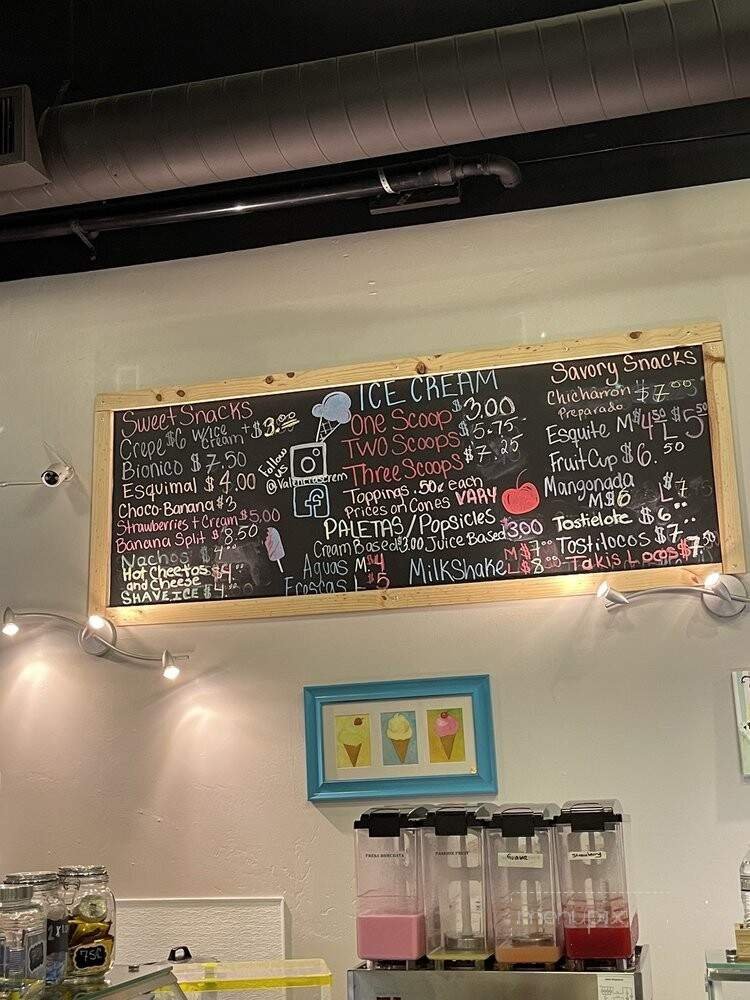 Sweet Snacks
Crepe $6 w/ice cream +$3.00
Bionico $7.50
Esquimal $4.00
Choco-Banana $3
Strawberries + Cream $5.00
Banana Split $8.50
Nachos $4
Hot Cheetos and Cheese $4.
SHAVE ICE $4.
Follow us
ICE CREAM
One Scoop $3.00
Two Scoops $5.75
Three Scoops $7.25
Toppings .50¢ each
Prices on Cones VARY
PALETAS/Popsicles
Cream Based $3.00 Juice Based $3.00
Aguas Frescas M $4 L $5
MilkShake M $7.00 L $8.00
Savory Snacks
Chicharron Preparado $7.00
Esquite M $4.50 L $5.50
Fruit Cup $6.50
Mangonada M $6 L $7
Tostielote $6
Tostilocos $7
Takis Locos $7.50
FRESA HORCHATA
PASSION FRUIT
Guava
Strawberry
75¢
menupix